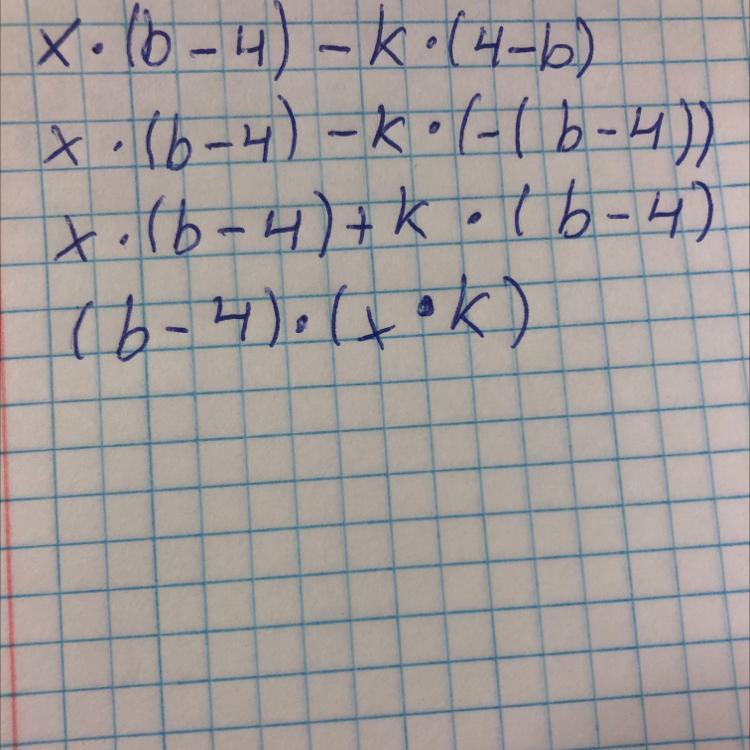 x · (b - 4) - k · (4 - b)
x · (b - 4) - k · (-( b - 4))
x · (b - 4) + k · ( b - 4)
(b - 4) · (x · k)